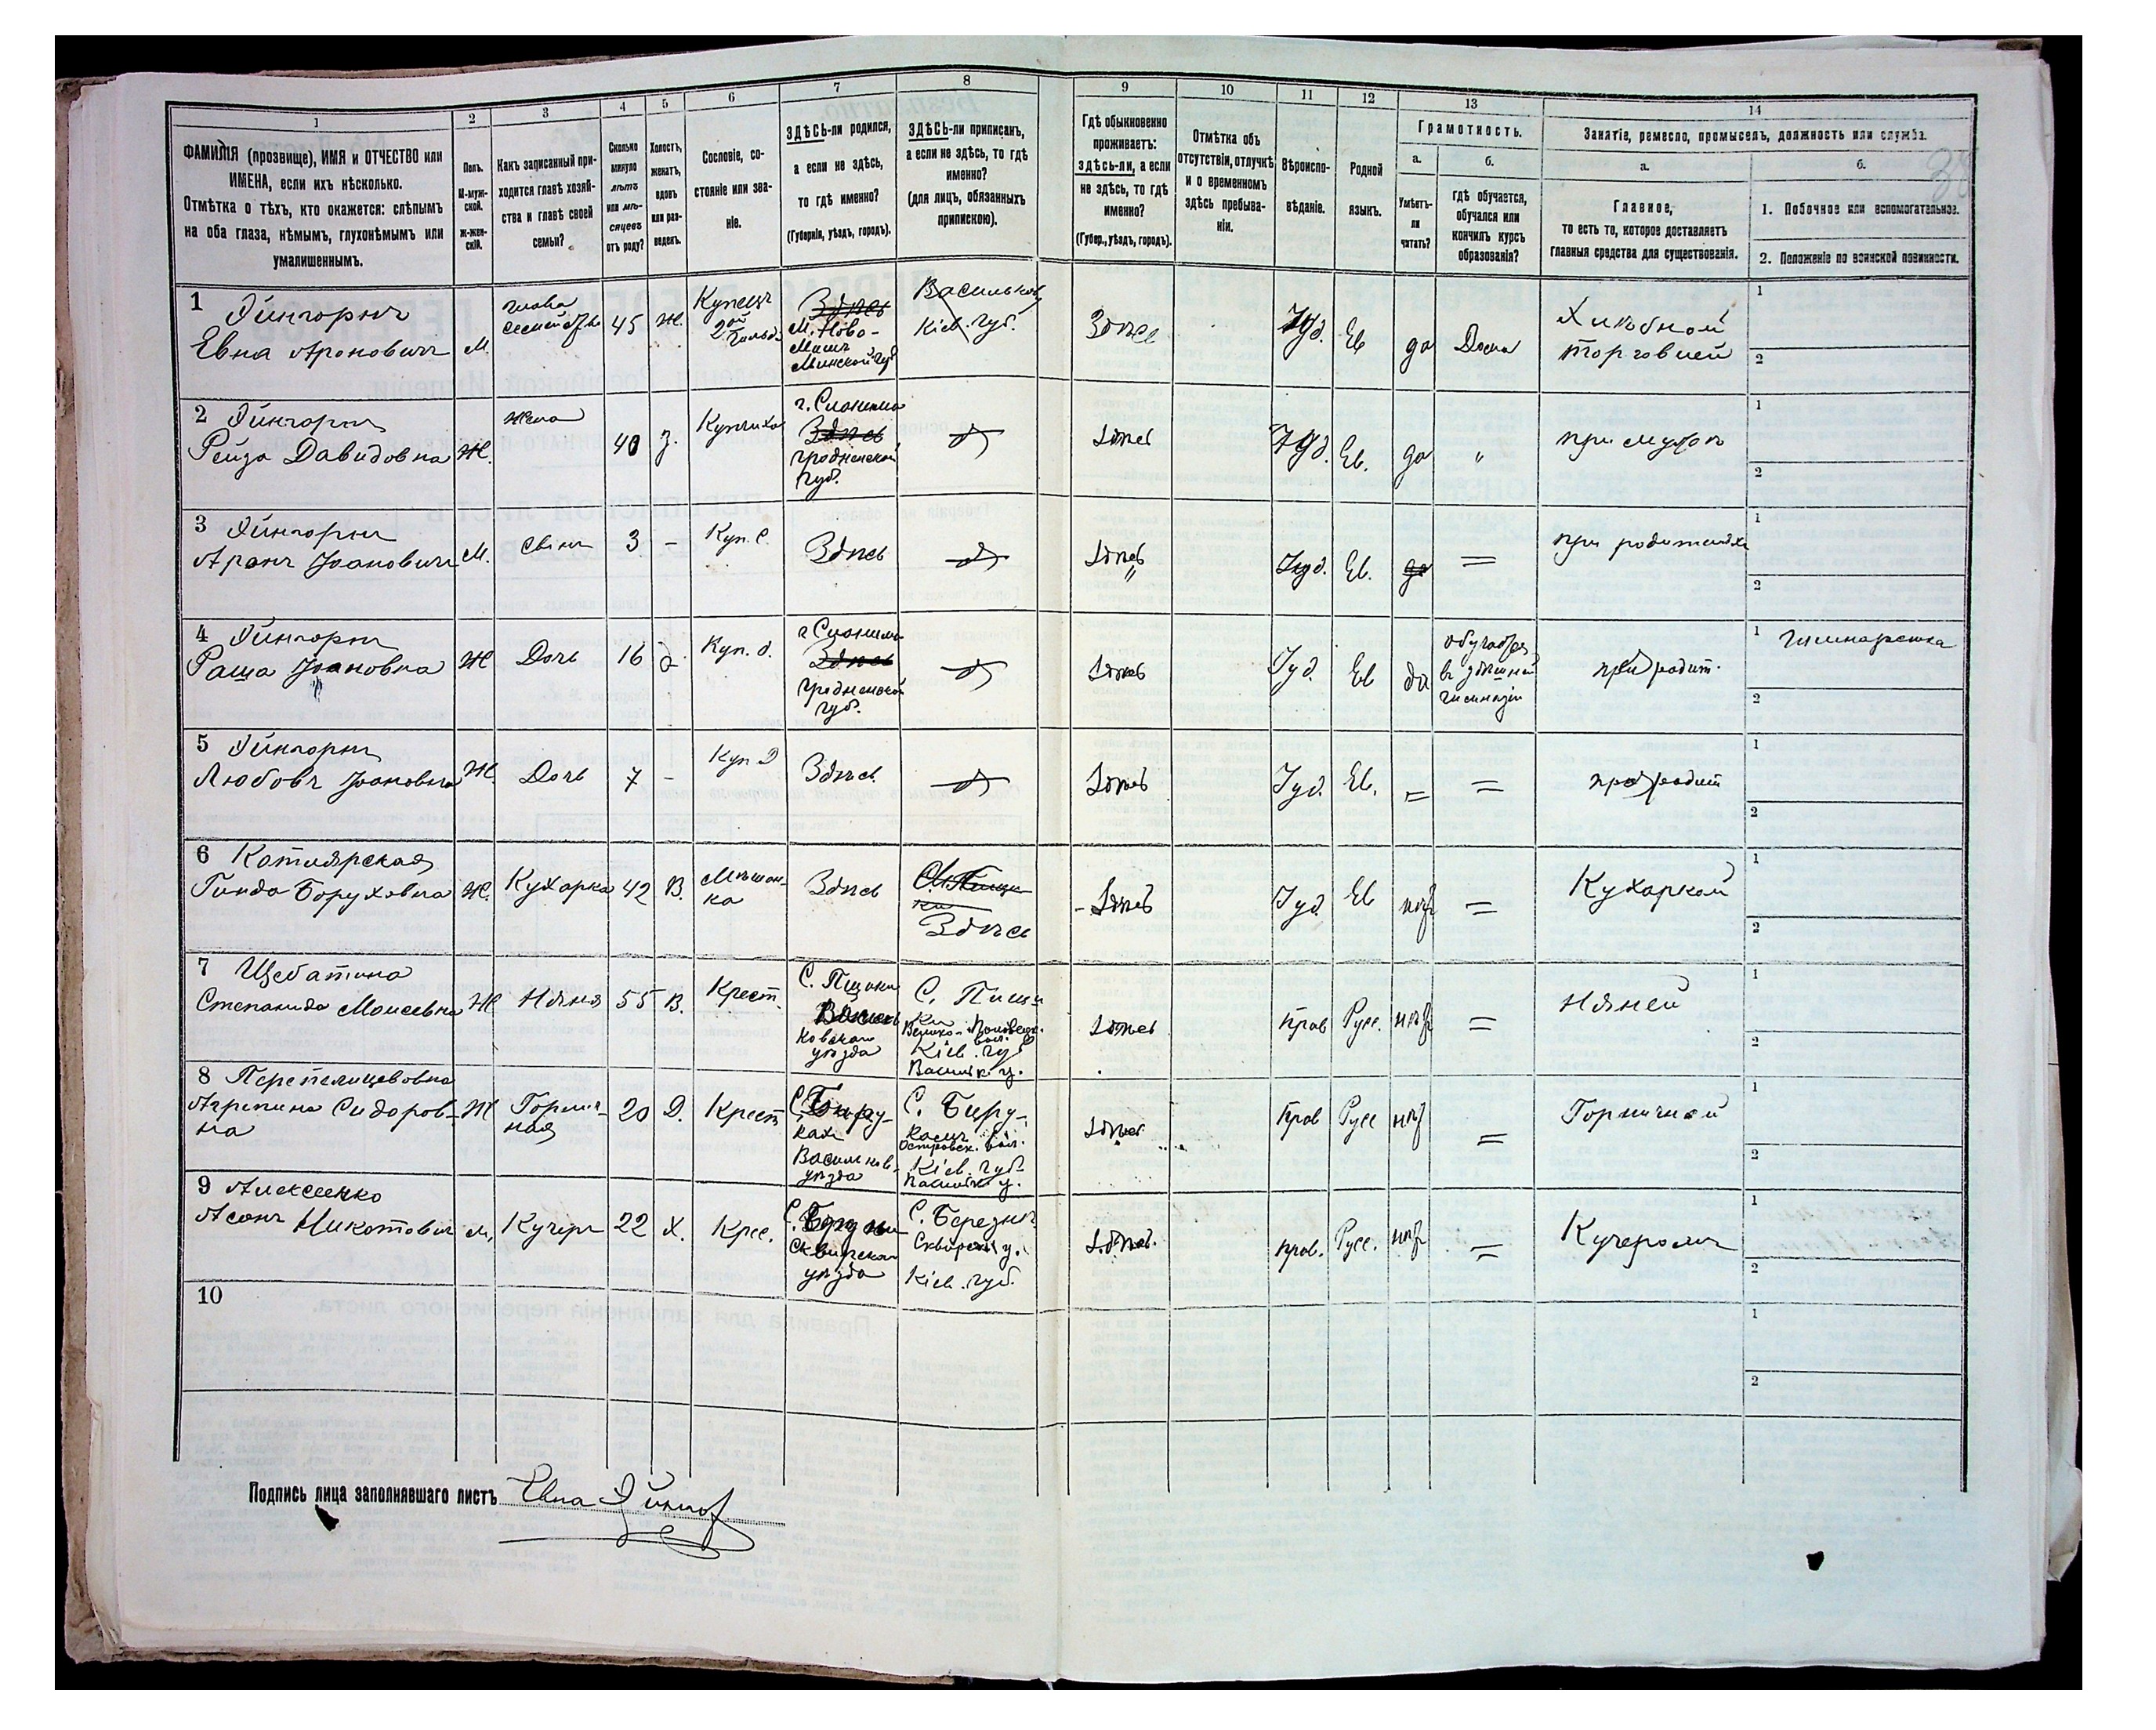 1 2 3 4 5 6 7 8 9 10 11 12 13 14
ФАМИЛІЯ (прозвище), ИМЯ и ОТЧЕСТВО или
ИМЕНА, если ихъ нѣсколько.
Отмѣтка о тѣхъ, кто окажется: слѣпымъ
на оба глаза, нѣмымъ, глухонѣмымъ или
умалишеннымъ.
Полъ.
М-муж-
ской.
Ж-жен-
скій.
Какъ записанный при-
ходится главѣ хозяй-
ства и главѣ своей
семьи?
Сколько
минуло
лѣтъ
или мѣ-
сяцевъ
отъ роду?
Холостъ,
женатъ,
вдовъ
или раз-
веденъ.
Сословіе, со-
стояніе или зва-
ніе.
ЗДѢСЬ-ли родился,
а если не здѣсь,
то гдѣ именно?
(Губернія, уѣздъ, городъ).
ЗДѢСЬ-ли приписанъ,
а если не здѣсь, то гдѣ
именно?
(для лицъ, обязанныхъ
припискою).
Гдѣ обыкновенно
проживаетъ:
здѣсь-ли, а если
не здѣсь, то гдѣ
именно?
(Губер., уѣздъ, городъ).
Отмѣтка объ
отсутствіи, отлучкѣ
и о временномъ
здѣсь пребыва-
ніи.
Вѣроиспо-
вѣданіе.
Родной
языкъ.
Грамотность.
а.
Умѣетъ-
ли
читать?
б.
гдѣ обучается,
обучался или
кончилъ курсъ
образованія?
Занятіе, ремесло, промыселъ, должность или служба.
а.
Главное,
то есть то, которое доставляетъ
главныя средства для существованія.
б.
1. Побочное или вспомогательное.
2. Положеніе по воинской повинности.
1 Эйнгорнъ
Евна Ароновичъ
М.
глава
семейства
45
Ж.
Купецъ
2ой
гильд.
Здѣсь
М. Ново-
Мышъ
Минской губ
Васильков
Кіев. губ.
Здѣсь
Іуд.
Ев
да
Дома
Хлѣбной
торговлей
1
2
2 Эйнгорнъ
Рейза Давидовна
Ж.
Жена
40
З.
Купчиха
г. Слонима
Здѣсь
Гродненской
губ.
Здѣсь
Іуд.
Ев.
да
"
при мужѣ
1
2
3 Эйнгорнъ
Аронъ
М.
Сынъ
3
-
Куп. С.
Здѣсь
Здѣсь
"
Іуд.
Ев.
да
=
при родителяхъ
1
2
4 Эйнгорнъ
Раша
Ж
Дочь
16
Д
Куп. д.
г Слонима
Здѣсь
Гродненской
губ.
Здѣсь
Іуд.
Ев
да
обучается
въ здѣшней
гимназіи
при родит.
1
2
5 Эйнгорнъ
Любовь
Ж.
Дочь
7
-
Куп Д
Здѣсь
Здѣсь
Іуд.
Ев.
=
=
при родит
1
2
6 Котлярская
Гинда Боруховна
Ж.
Кухарка
42
В.
Мѣщан-
ка
Здѣсь
Здѣсь
Здѣсь
Іуд
Ев
нѣт
=
Кухаркой
1
2
7 Щебатина
Степанида Моисеевна
Ж
Няня
55
В.
Крест.
С. Пищики
Василь
ковскаго
уѣзда
С. Пищи
ки
Кіев. губ
Васильк. у.
Здѣсь
прав
Русс.
нѣт
=
Няней
1
2
8 Перепелицевовна
Агрепина Сидоров-
на
Ж
Горнич-
ная
20
Д.
Крест
С. Бирю-
ках
Васильков-
уѣзда
С. Бирю-
кахъ
Островск. вол.
Кіев. губ.
Васильк у.
Здѣсь
прав
Русс
нѣт
=
Горничной
1
2
9 Алексеенко
Асонъ
м.
Кучеръ
22
Х.
Крес.
Сквирскаго
уѣзда
С. Березна
Сквирск у.
Кіев. губ.
Здѣсь.
прав.
Русс.
нѣт
=
Кучеромъ
1
2
10
1
2
Подпись лица заполнявшаго листъ
Евна